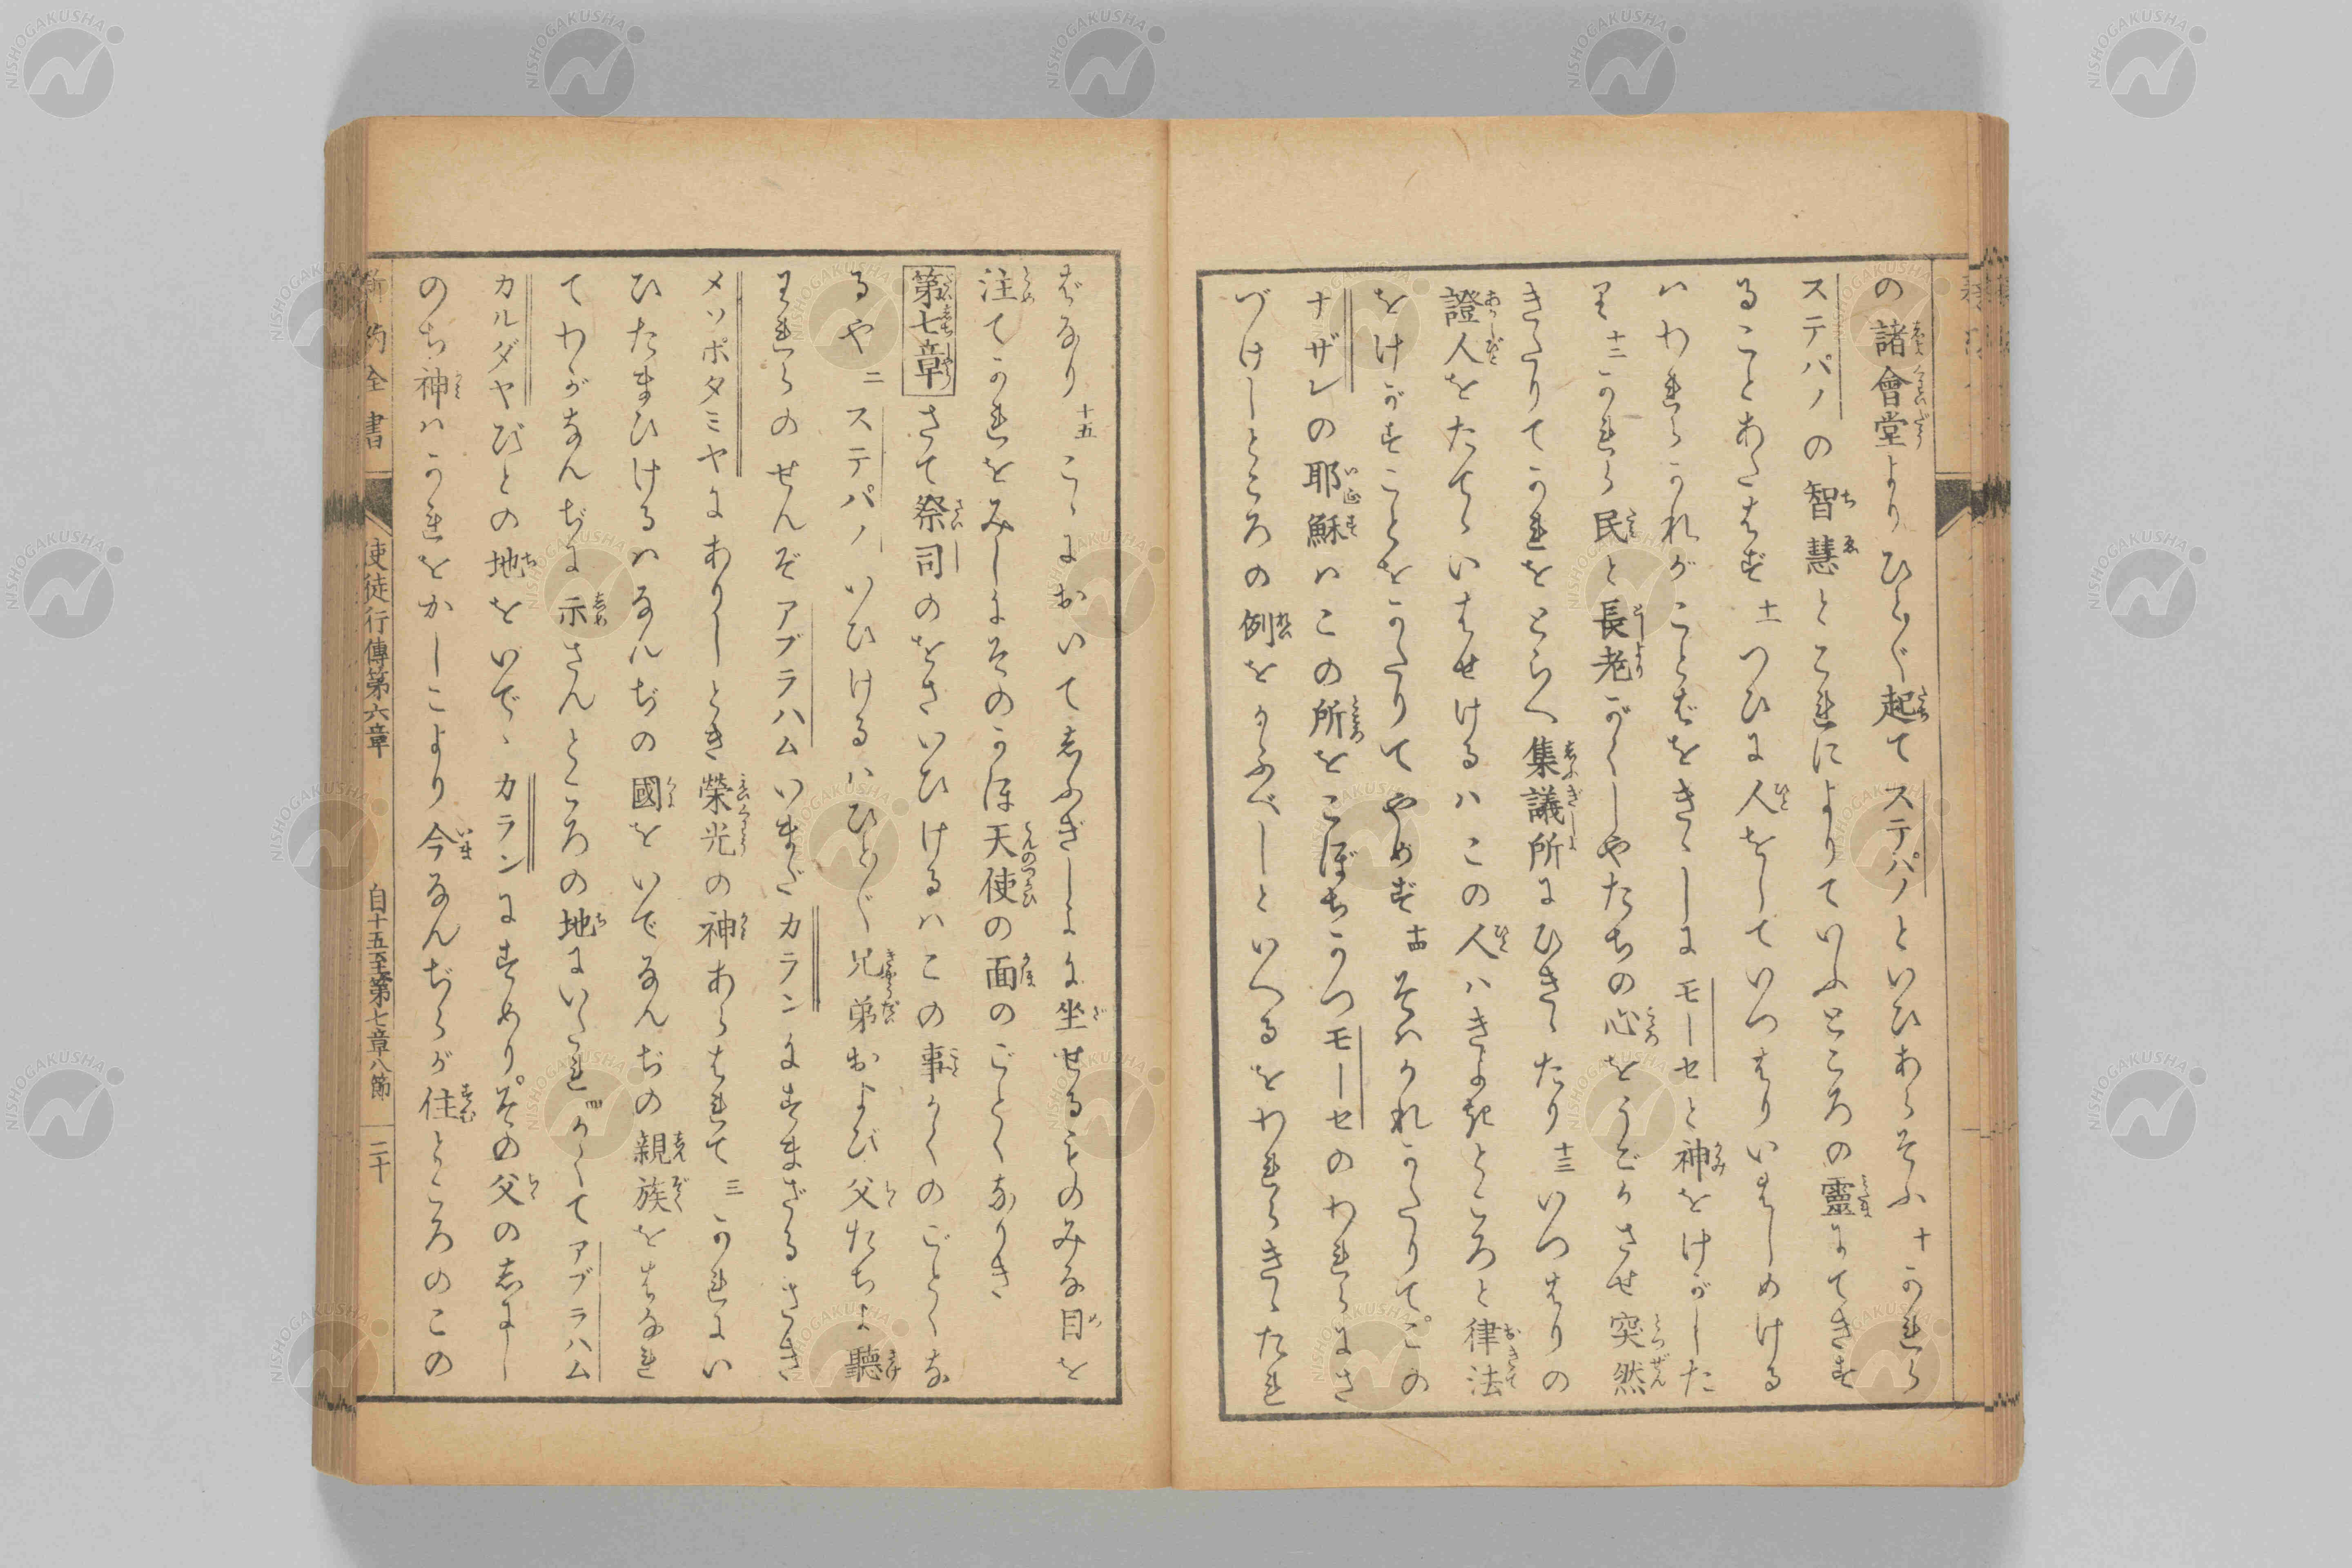 の諸會堂よりひとびと起てステパノといひあらそふ十かれら
ステパノの智慧とこれによりていふところの靈にてきす
ることあたはず十一つひに人をしていつはりいはしめける
ハわれらかれがことばをきゝしにモーセと神をけがした
り十二かれら民と長老がくしやたちの心をうごかさせ突然
きたりてかれをとらへ集議所にひききたり十三いつはりの
證人をたてゝいはせけるハこの人ハきよきところと律法
をけがすことをかたりてやめず十四そハかれかたりてこの
ナザレの耶穌ハこの所をこぼちかつモーセのわれらにさ
づけしところの例をかふべしといへるをわれらきゝたれ
ばなり十五こゝにおいてしふぎしよに坐せるものみな目を
注てかれをみしにそのかほ天使の面のごとくなりき
第七章さて祭司のをさいひけるハこの事かくのごとくな
るや二ステパノいひけるハひとびと兄弟および父たちよ聽
われらのせんぞアブラハムいまだカランにすまざるさき
メソポタミヤにありしとき榮光の神あらはれて三かれにい
ひたまひけるハなんぢの國をいでなんぢの親族をはなれ
てわがなんぢに示さんところの地にいたれ四かくてアブラハム
カルダヤびとの地をいでゝカランにすめりその父のしにし
のち神ハかれをかしこより今なんぢらが住ところのこの
新約全書
使徒行傳第六章
自十五至第七章八節
二十
NISHOGAKUSHA